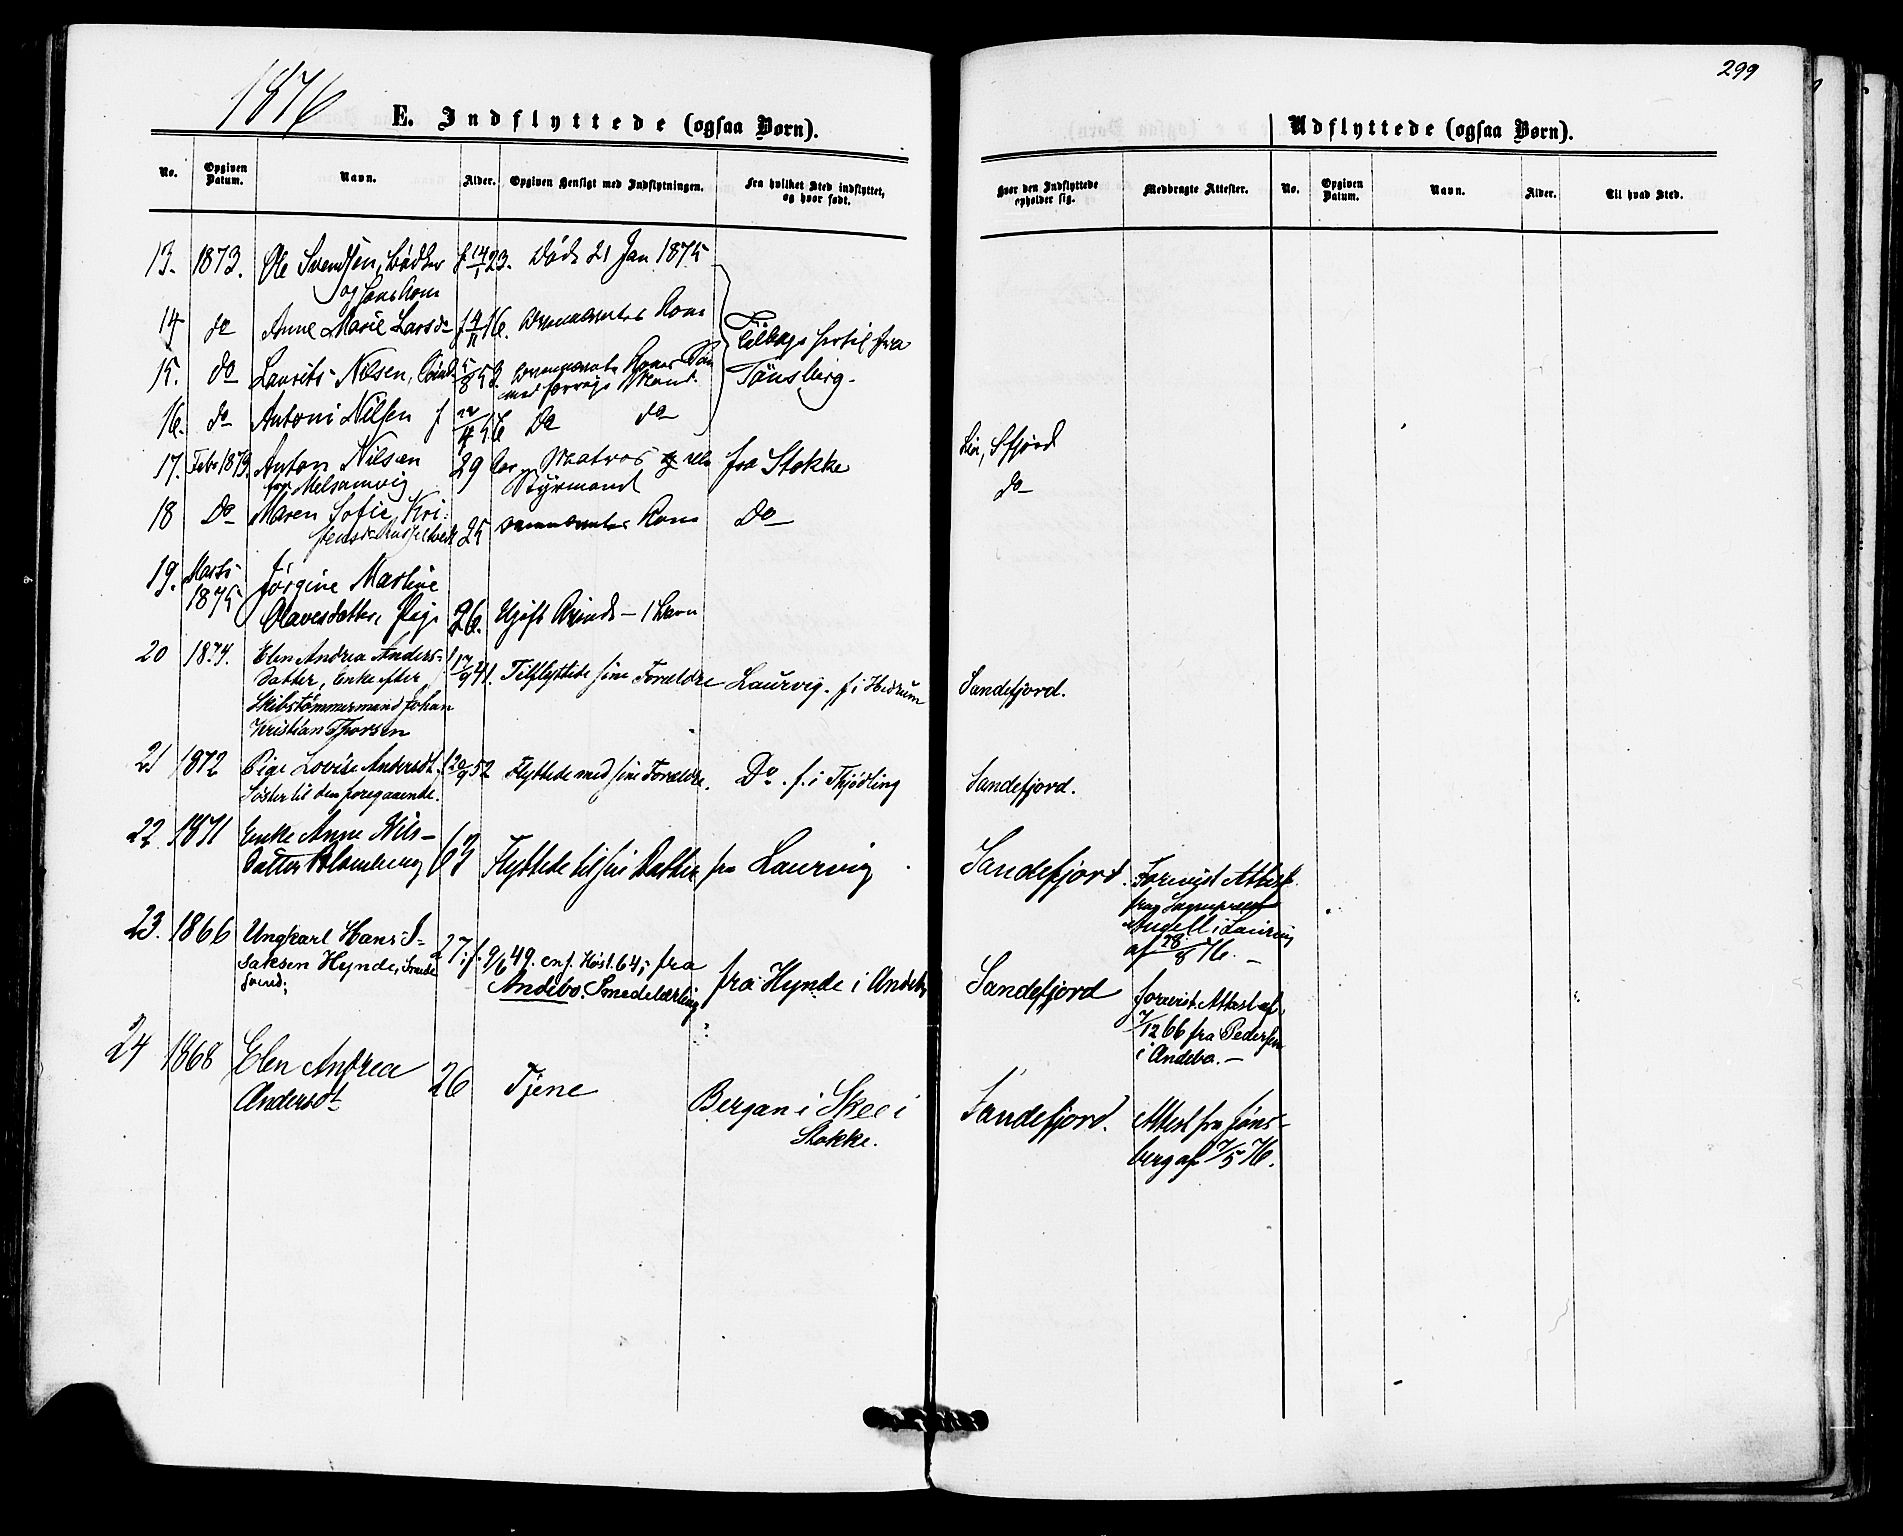 1876
299
E. Indflyttede (ogsaa Børn).
Udflyttede (ogsaa Børn).
No.
Opgiven Datum.
Navn.
Alder.
Opgiven Hensigt med Indflytningen.
Fra hvilket Sted indflyttet, og hvor født.
Hvor den Indflyttede opholder sig.
Medbragte Attester.
No.
Opgiven Datum.
Navn.
Alder.
Til hvad Sted.
13. 1873. Ole Svendsen, Bødker f 14/1 23. Død 21 Jan 1875
og hans Kone
14 do Anne Marie Larsd. f 9/11 16. Kone
Tilbage hertil fra
15. do Laurits Nilsen, 5/8 53. Kones Søn
med forrige Mand. Tønsberg.
16. do Antoni Nilsen f 22/4 56 Do do
17. Febr 1873. Anton Nilsen 29 Matros Styrmand fra Stokke Sfjord
fra Melsomvig do
18 Do Maren Sofie Kri-
stensd. 25 Kone Do
19. Marts
1875 Jørgine Martine
Olavesdatter, Pige 26. Ugift Kvinde – 1 Barn
20 1874. Elen Andrea Anders- f 17/9 41. Tilflyttede sine Forældre Laurvig. f i Hedrum Sandefjord.
datter, Enke efter
Skibstømmermand Johan
Kristian Thorsen
21 1872 Pige Lovise Andersdt. f 20/9 52 Flyttede med sine Forældre. Do. f. i Tjødling Sandefjord.
Søster til den foregaaende.
22 1871 Enke Anne Nils-
datter Blomberg 63 Flyttede til sin Datter fra Laurvig Sandefjord. Forevist Attest
fra Sogneprest
Angell i Laurvig
af 28/8 76. –
23. 1866 Ungkarl Hans I- 27; f. 9/6 49. conf. Høst. 64; fra
saksen Hynde, Smede Andebo. Smedelærling fra Hynde i Andebo Sandefjord forevist Attest af
svend; 7/12 66 fra Pedersen
i Andebo. –
24 1868 Elen Andrea
Andersdt 26 Tjene Bergan i Skee i
Stokke. Sandefjord. Attest fra Tøns-
berg af 7/5 76.